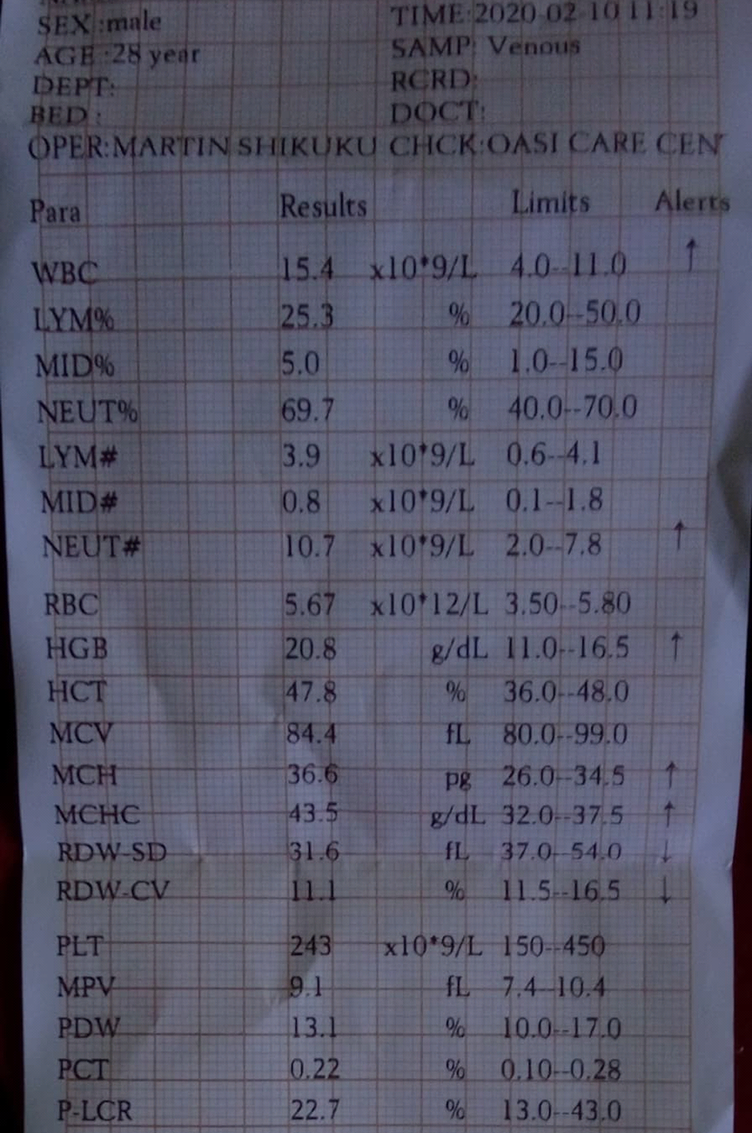 SEX :male TIME:2020-02-10 11:19
AGE :28 year SAMP: Venous
DEPT: RCRD:
BED : DOCT:
OPER:MARTIN SHIKUKU CHCK:OASI CARE CEN
Para Results Limits Alerts
WBC 15.4 x10*9/L 4.0--11.0 ↑
LYM% 25.3 % 20.0--50.0
MID% 5.0 % 1.0--15.0
NEUT% 69.7 % 40.0--70.0
LYM# 3.9 x10*9/L 0.6--4.1
MID# 0.8 x10*9/L 0.1--1.8
NEUT# 10.7 x10*9/L 2.0--7.8 ↑
RBC 5.67 x10*12/L 3.50--5.80
HGB 20.8 g/dL 11.0--16.5 ↑
HCT 47.8 % 36.0--48.0
MCV 84.4 fL 80.0--99.0
MCH 36.6 pg 26.0--34.5 ↑
MCHC 43.5 g/dL 32.0--37.5 ↑
RDW-SD 31.6 fL 37.0--54.0 ↓
RDW-CV 11.1 % 11.5--16.5 ↓
PLT 243 x10*9/L 150--450
MPV 9.1 fL 7.4--10.4
PDW 13.1 % 10.0--17.0
PCT 0.22 % 0.10--0.28
P-LCR 22.7 % 13.0--43.0